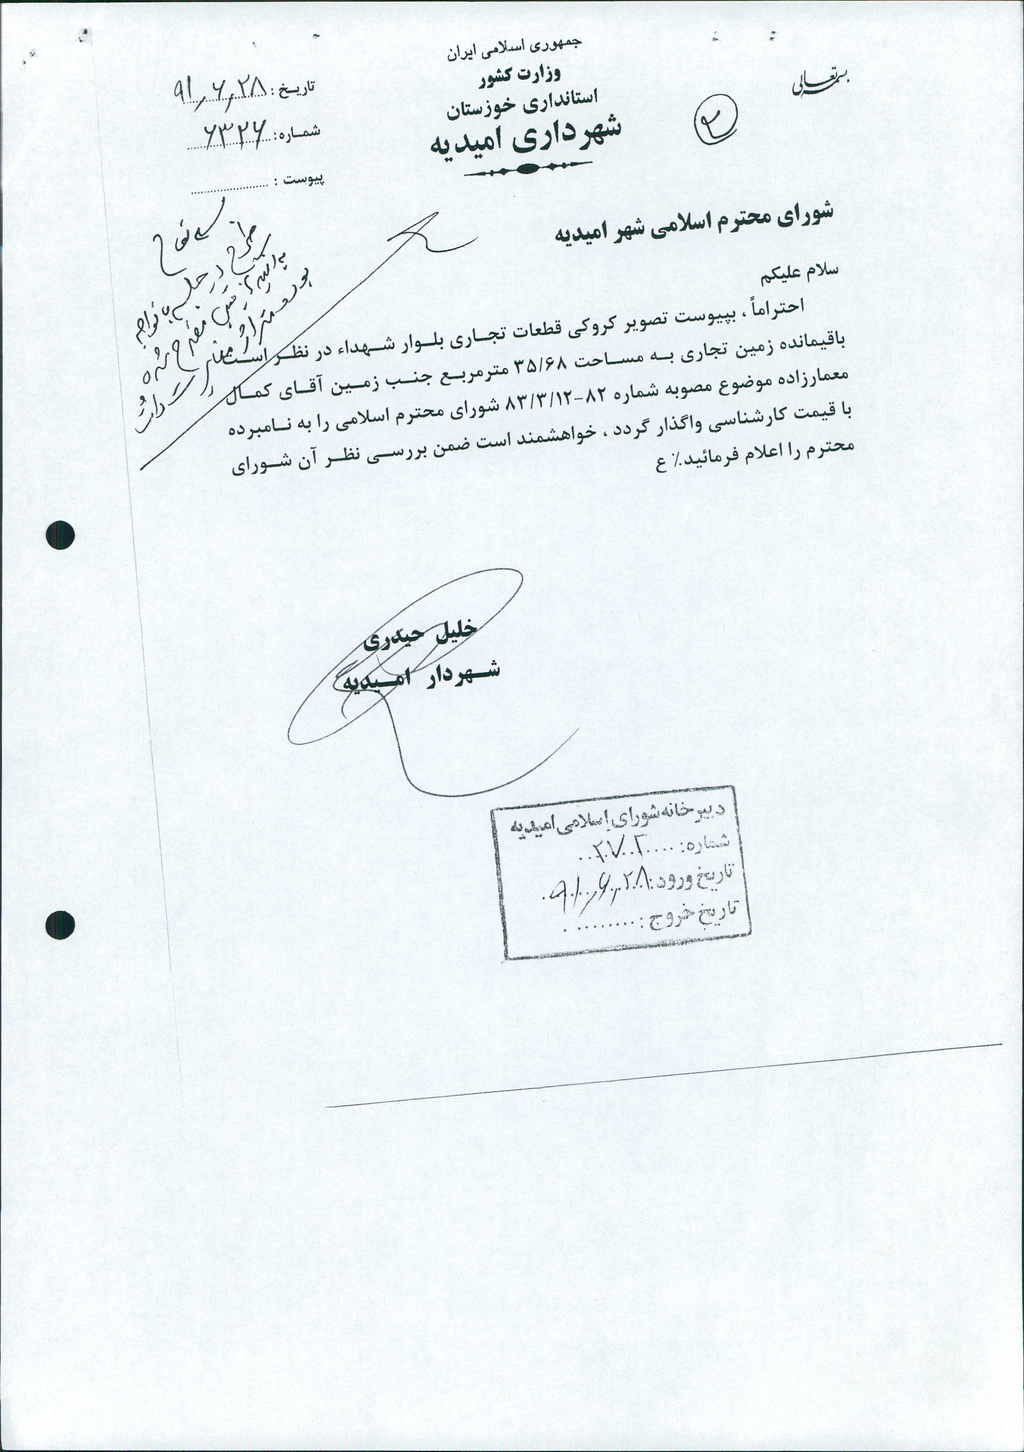 بسمه تعالی
جمهوری اسلامی ایران
وزارت کشور
استانداری خوزستان
شهرداری امیدیه
تاریخ : ۹۱,۶,۲۸
شماره: ۶۳۲۶
پیوست :
۲
شورای محترم اسلامی شهر امیدیه
سلام علیکم
احتراماً ، بپیوست تصویر کروکی قطعات تجاری بلوار شهداء در نظر است
باقیمانده زمین تجاری به مساحت ۳۵/۶۸ مترمربع جنب زمین آقای کمال
معمارزاده موضوع مصوبه شماره ۸۲-۸۳/۳/۱۲ شورای محترم اسلامی را به نامبرده
با قیمت کارشناسی واگذار گردد ، خواهشمند است ضمن بررسی نظر آن شورای
محترم را اعلام فرمائید٪ ع
خلیل حیدری
شهردار امیدیه
دبیرخانه شورای اسلامی امیدیه
شماره:
تاریخ ورود: ۹۱,۶,۲۸
تاریخ خروج :